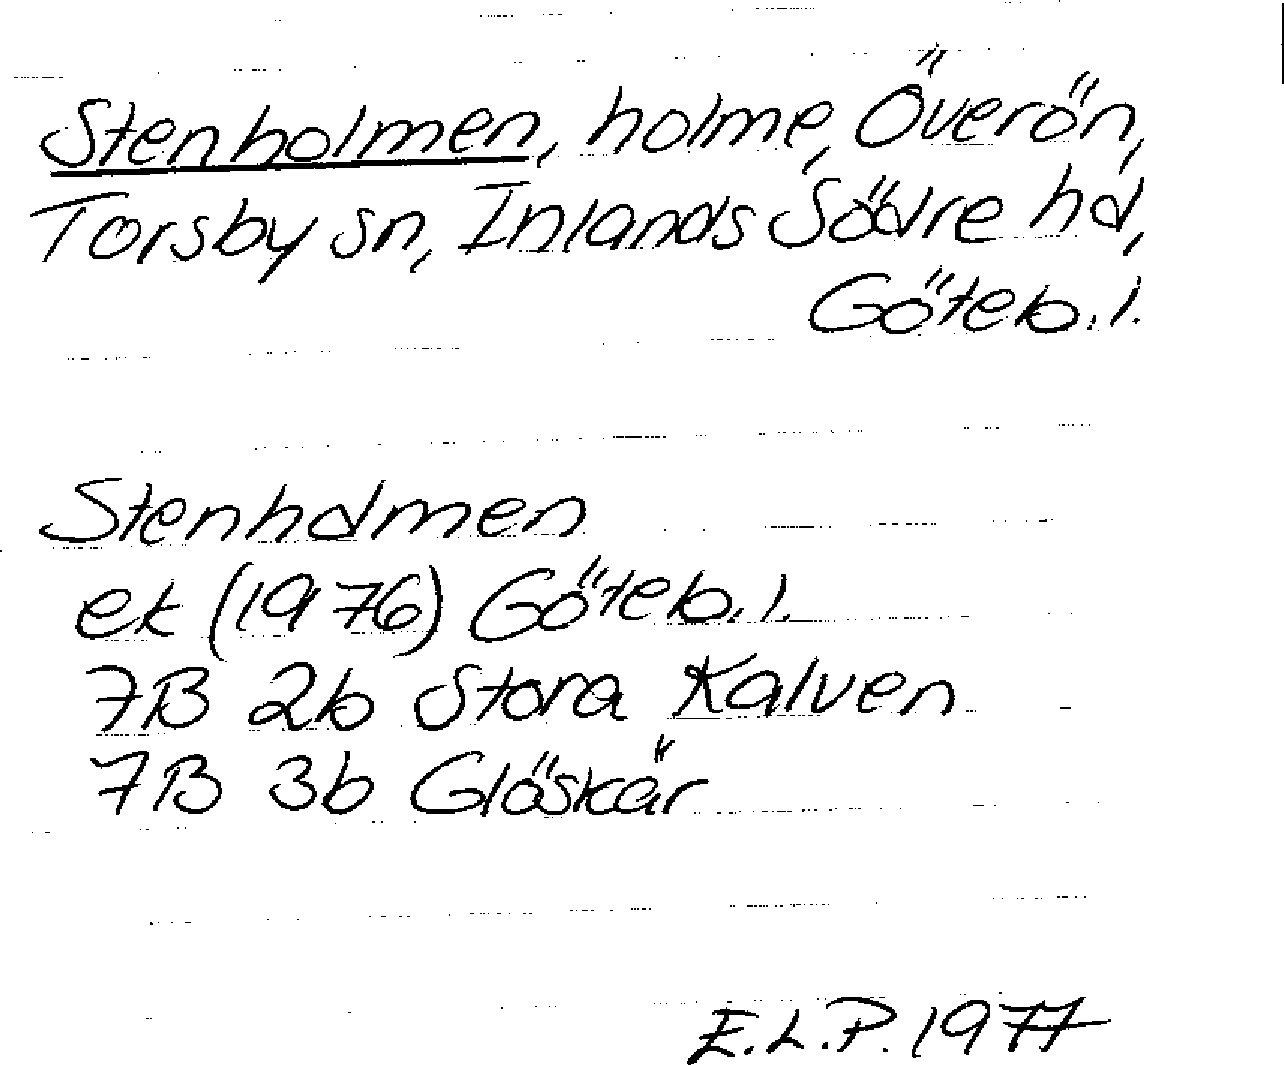 Stenholmen, holme, Överön,
Torsby sn, Inlands Södre hd,
Göteb. l.
Stenholmen
ek (1976) Göteb. l.
7B 2b Stora Kalven
7B 3b Glöskär
E.L.P. 1977